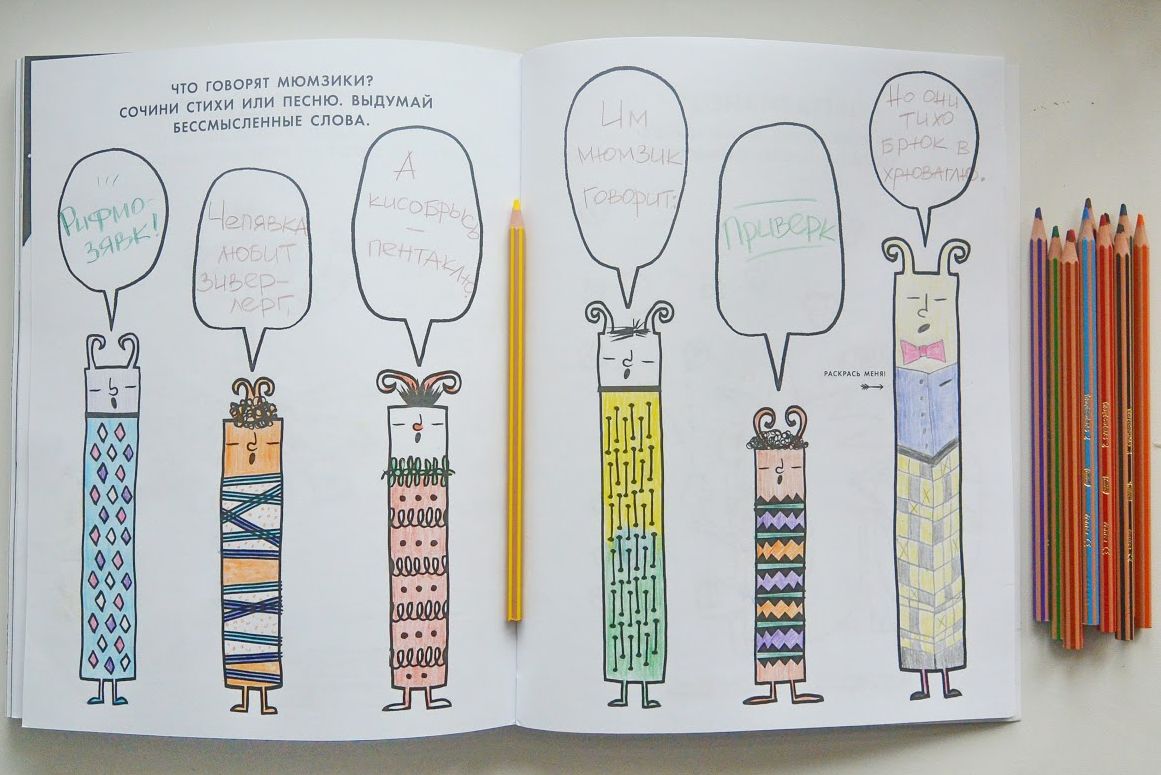 ЧТО ГОВОРЯТ МЮМЗИКИ?
СОЧИНИ СТИХИ ИЛИ ПЕСНЮ. ВЫДУМАЙ
БЕССМЫСЛЕННЫЕ СЛОВА.
Рифмо-
зявк!
Чепявка
любит
зивер-
лерг,
А
кисобрысь
–
пентаклю.
Им
мюмзик
говорит:
Приверк
Но они
тихо
брюк в
хрюваглю.
РАСКРАСЬ МЕНЯ!